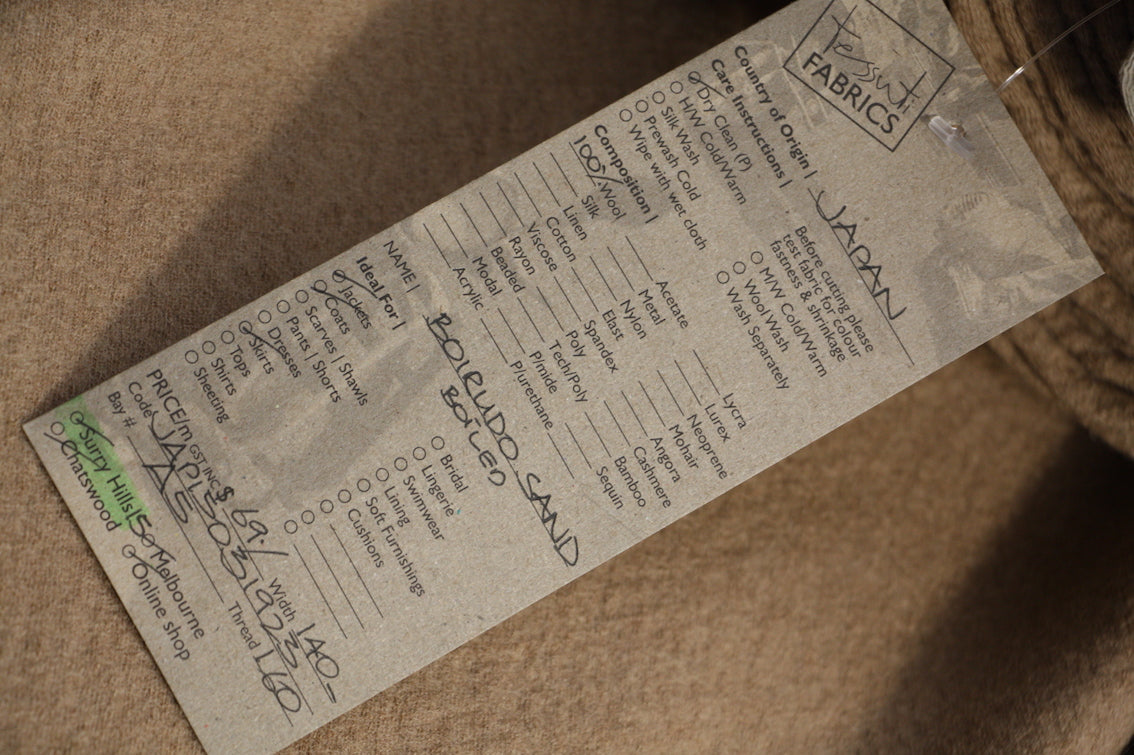 Tessuti
FABRICS
Country of Origin | JAPAN
Care Instructions |
Dry Clean (P)
H/W Cold/Warm
Silk Wash
Prewash Cold
Wipe with wet cloth
Before cutting please
test fabric for colour
fastness & shrinkage
M/W Cold/Warm
Wool Wash
Wash Separately
Composition |
100% Wool
Silk
Linen
Cotton
Viscose
Rayon
Beaded
Modal
Acrylic
Acetate
Metal
Nylon
Elast
Spandex
Poly
Tech/Poly
P/mide
P/urethane
Lycra
Lurex
Neoprene
Mohair
Angora
Cashmere
Bamboo
Sequin
NAME | BOIRUDO SAND
BOILED
Ideal For |
Jackets
Coats
Scarves | Shawls
Pants | Shorts
Dresses
Skirts
Tops
Shirts
Sheeting
Bridal
Lingerie
Swimwear
Lining
Soft Furnishings
Cushions
PRICE/m GST INC $ 69/ Width 140-
Code JAP15031923
Bay # AE Thread 160
Surry Hills 150 Melbourne
Chatswood Online shop